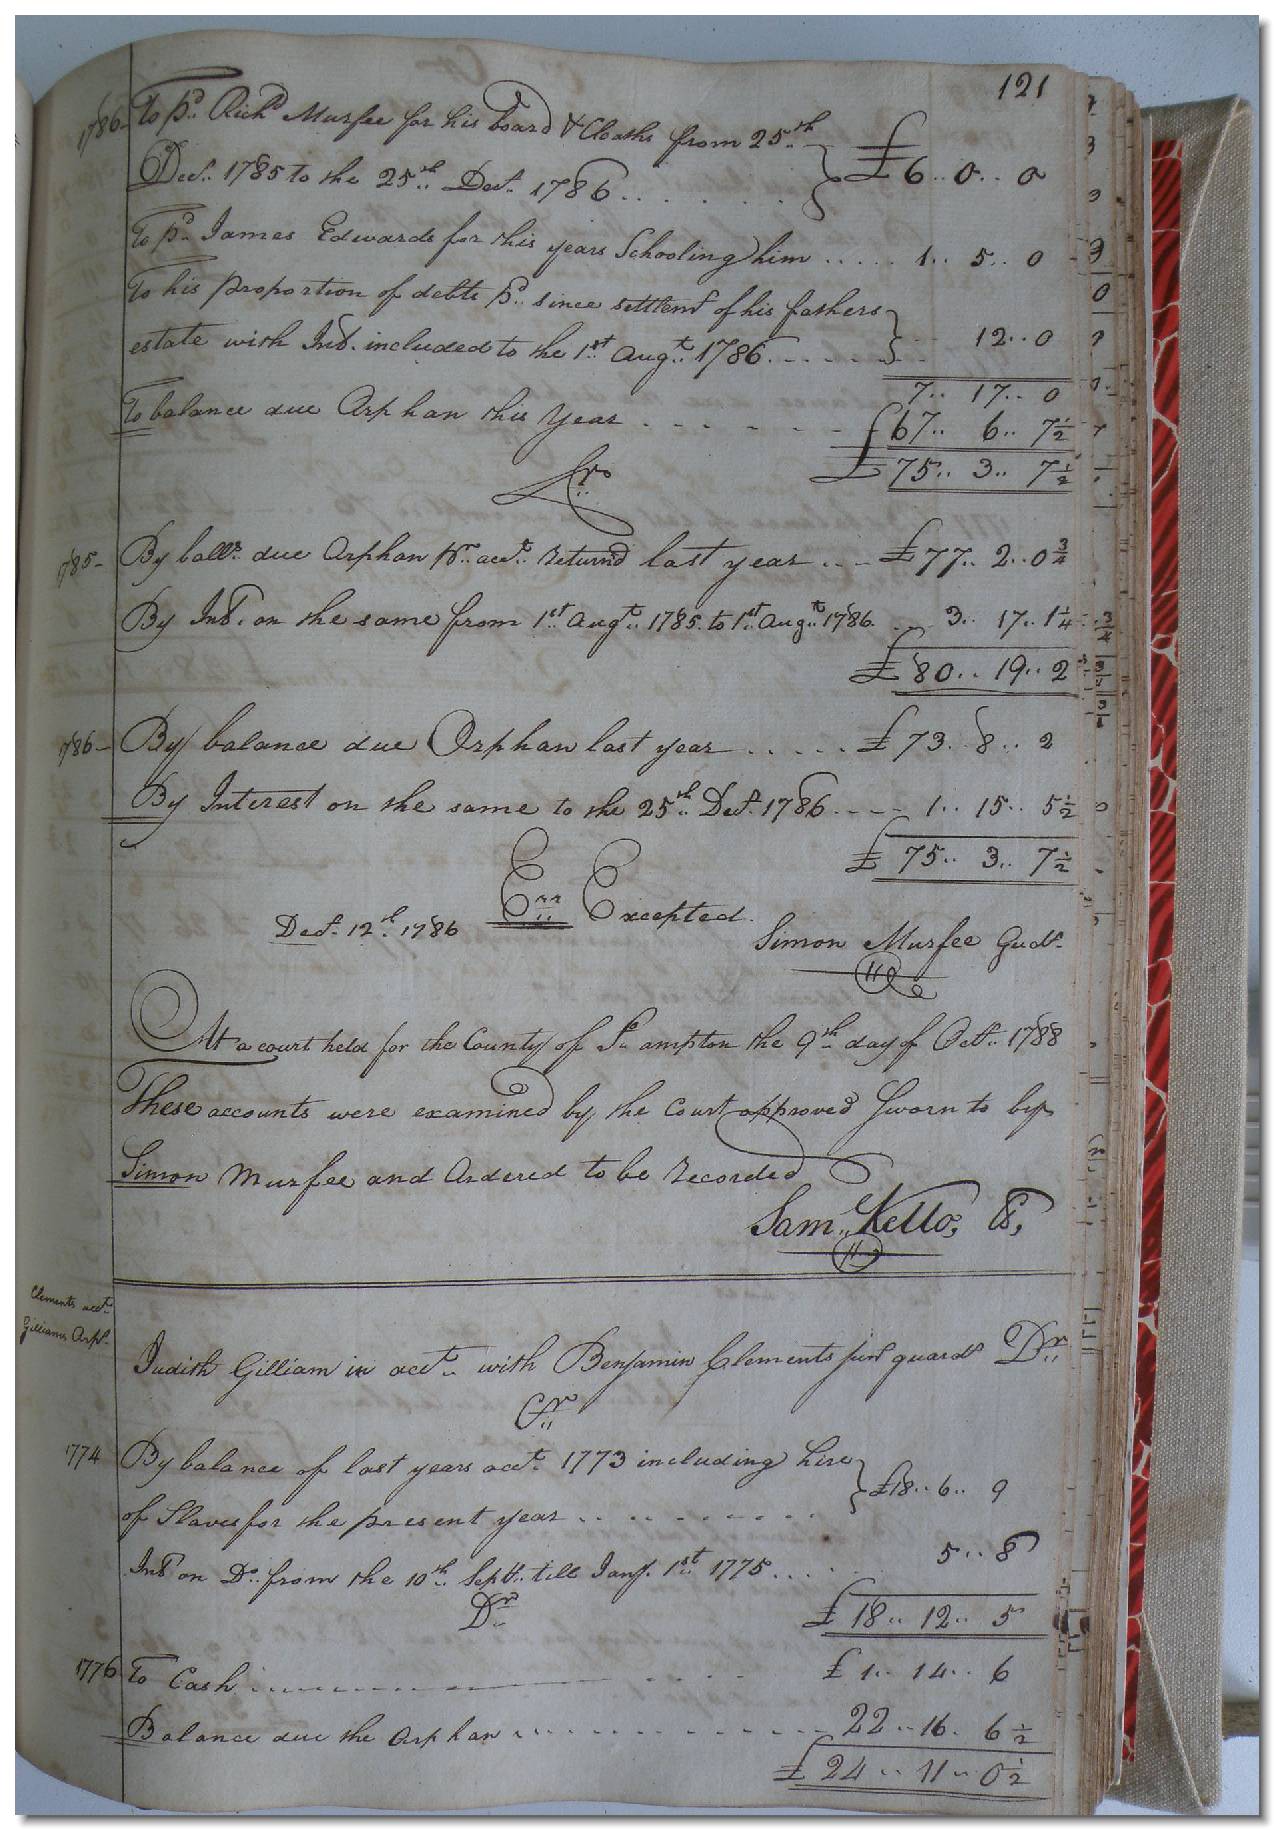 121
1786 To pd. Richd Murfee for his board & Cloaths from 25th
Decr. 1785 to the 25th Decr. 1786 . . . . . . } £6 .. 0 .. 0
To pd. James Edwards for this years Schooling him . . . . . 1 .. 5 .. 0
To his proportion of debts pd. since settlemt of his fathers
estate with Int. included to the 1st Augt. 1786 . . . . . } 12 .. 0
7 .. 17 .. 0
To balance due Orphan this Year . . . . . . £67 .. 6 .. 7½
£75 .. 3 .. 7½
Cr.
1785 - By ballce. due Orphan pr. acct. returnd last year . . . £77 .. 2 .. 0¾
By Int. on the same from 1st Augt. 1785 to 1st Augt. 1786 . . 3 .. 17 .. 1¼
£80 .. 19 .. 2
1786 - By balance due Orphan last year . . . . . £73 .. 8 .. 2
By Interest on the same to the 25th Decr. 1786 . . . . 1 .. 15 .. 5½
£75 .. 3 .. 7½
Err. Excepted
Decr. 12th. 1786
Simon Murfee Gudn.
At a court held for the County of So. ampton the 9th day of Octr. 1788
These accounts were examined by the Court approved Sworn to by
Simon Murfee and Ordered to be recorded
Sam. Kello, C,
Clements acct.
Gilliams Orpn.
Judith Gilliam in acct. with Benjamin Clements junr guardn Dr.
Cr.
1774 By balance of last years acct. 1773 including hire
of Slaves for the present year . . . . . . . . } £18 .. 6 .. 9
Int on Do. from the 10th Septr. till Jany. 1st 1775 . . . . 5 .. 8
£18 .. 12 .. 5
Dr.
1776 To Cash . . . . . . £1 .. 14 .. 6
Balance due the Orphan . . . . . . . 22 .. 16 .. 6½
£24 .. 11 .. 0½